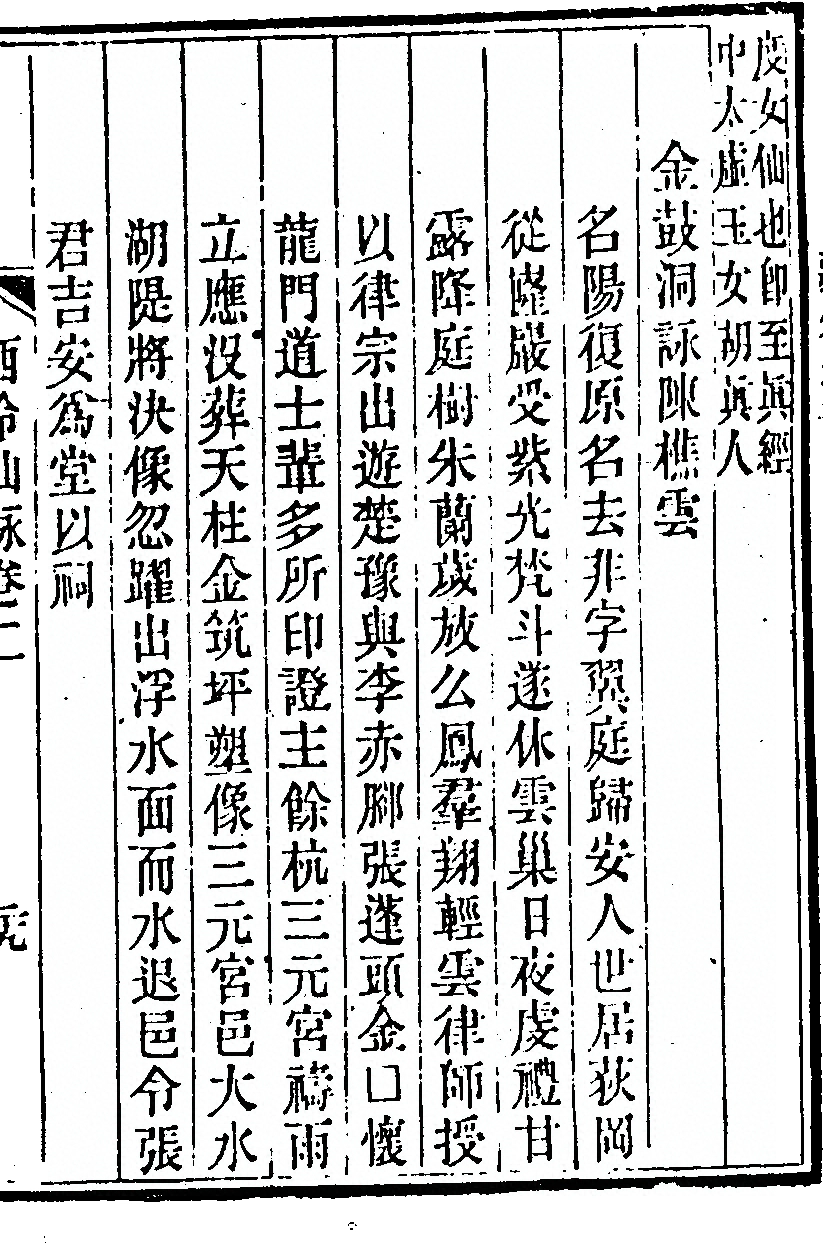 度女仙也卽至眞經
中太虛玉女胡眞人
金鼓洞詠陳樵雲
名陽復原名去非字翼庭歸安人世居荻岡
從隆巖受紫光梵斗遂休雲巢日夜虔禮甘
露降庭樹朱蘭歲放么鳳羣翔輕雲律師授
以律宗出遊楚豫與李赤腳張蓬頭金口懷
龍門道士輩多所印證主餘杭三元宮禱雨
立應沒葬天柱金筑坪塑像三元宮邑大水
湖隄將決像忽躍出浮水面而水退邑令張
君吉安爲堂以祠
西泠仙詠卷二